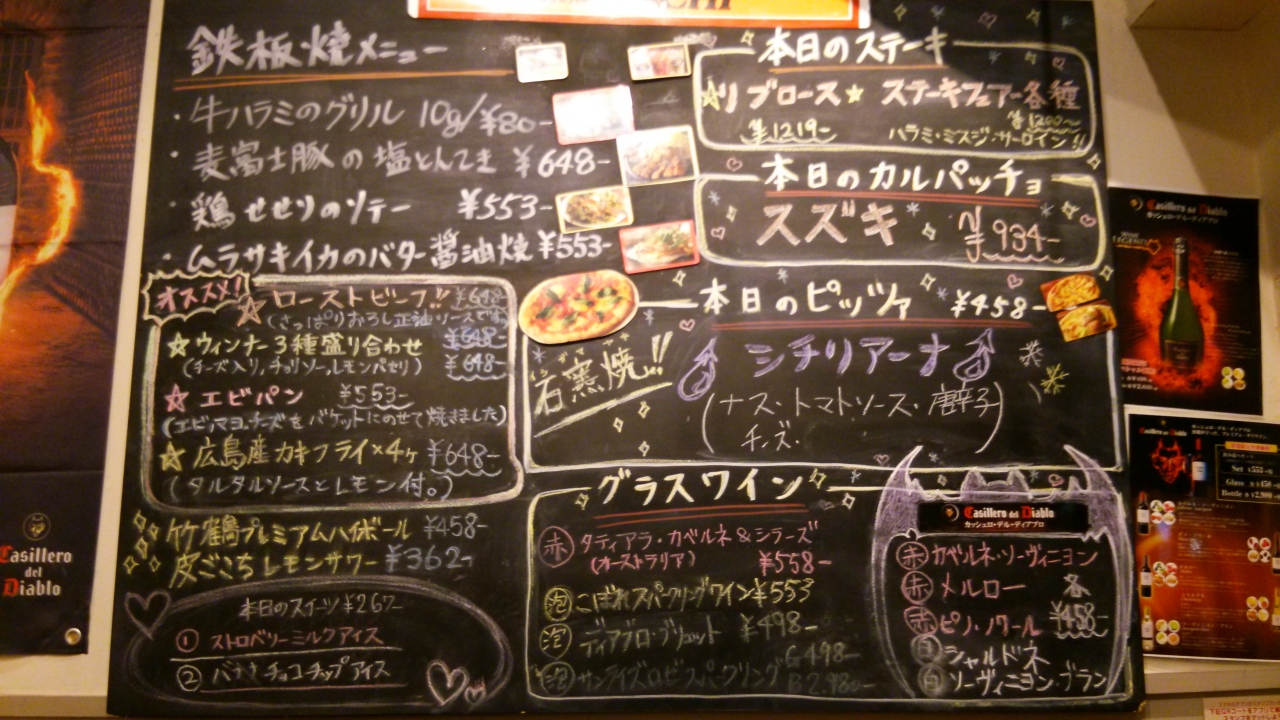 鉄板焼メニュー
・牛ハラミのグリル 10g/¥80-
・麦富士豚の塩とんてき ¥648-
・鶏せせりのソテー ¥553-
・ムラサキイカのバター醤油焼 ¥553-
オススメ!
☆ローストビーフ!! ¥648-
(さっぱりおろし正油ソースです)
☆ウィンナー3種盛り合わせ ¥648-
(チーズ入り,チョリソー,レモンパセリ) ¥648-
☆エビパン ¥553-
(エビ,マヨ,チーズをバケットにのせて焼きました)
☆広島産カキフライ×4ヶ ¥648-
(タルタルソースとレモン付。)
竹鶴プレミアムハイボール ¥458-
皮ごこちレモンサワー ¥362-
本日のスイーツ ¥267-
① ストロベリーミルクアイス
② バナナチョコチップアイス
本日のステーキ
☆リブロース☆ ステーキフェアー各種
¥1219- ¥1200-
ハラミ・ミスジ・サーロイン!!
本日のカルパッチョ
スズキ ¥934-
本日のピッツァ ¥458-
石窯焼!!
シチリアーナ
(ナス・トマトソース・唐辛子
チーズ・)
グラスワイン
赤 タティアラ・カベルネ&シラーズ
(オーストラリア) ¥558-
泡 こぼれスパークリングワイン ¥553
泡 ディアブロ・ブリュット ¥498-
泡 サンライズロゼスパークリング G498-
B2.980-
Casillero del Diablo
カッシェロ・デル・ディアブロ
赤 カベルネ・ソーヴィニヨン
赤 メルロー 各
赤 ピノ・ノワール ¥458-
白 シャルドネ
白 ソーヴィニヨン・ブラン
Casillero
del
Diablo
Casillero del Diablo
カッシェロ・デル・ディアブロ
Casillero del Diablo